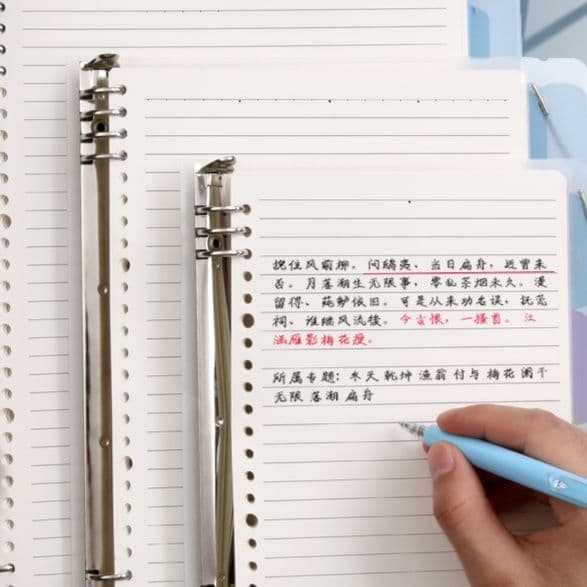 拽住风前柳。问鸱夷、当日扁舟，近曾来
否。月落潮生无限事，零乱茶烟未久。漫
留得、莼鲈依旧。可是从来功名误，抚荒
祠、谁继风流后。今古恨，一搔首。江
涵雁影梅花瘦。
所属专题：冬天 乾坤 渔翁 付与 梅花 阑干
无限 落潮 扁舟